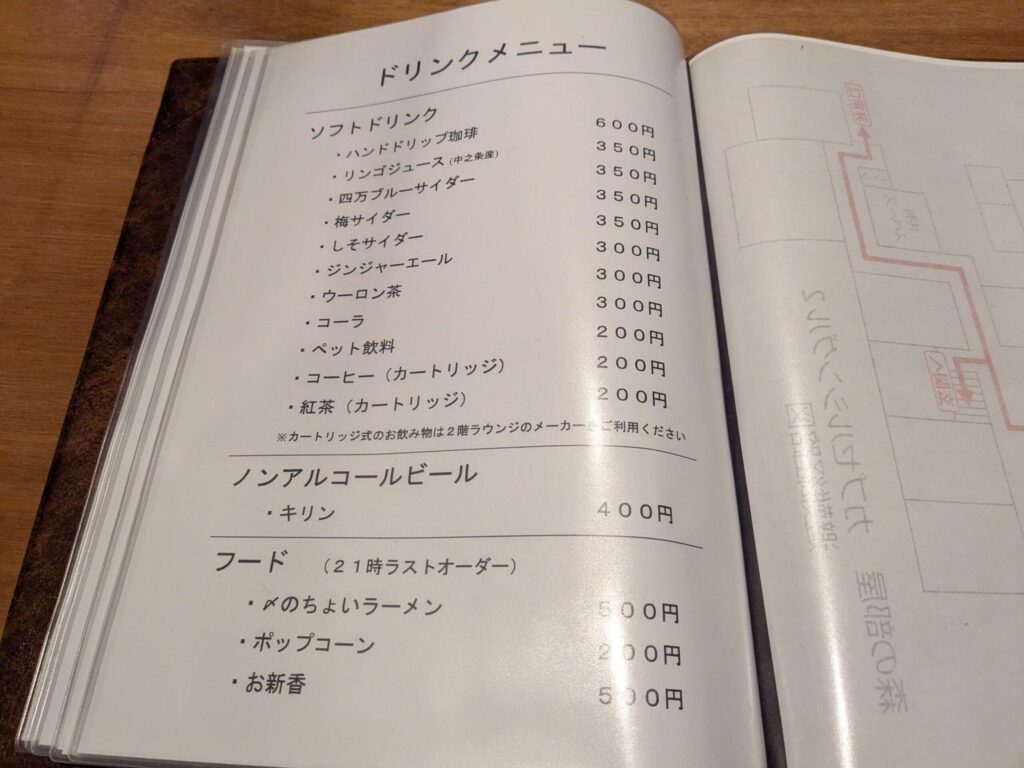 ドリンクメニュー
ソフトドリンク
・ハンドドリップ珈琲 ６００円
・リンゴジュース（中之条産） ３５０円
・四万ブルーサイダー ３５０円
・梅サイダー ３５０円
・しそサイダー ３５０円
・ジンジャーエール ３００円
・ウーロン茶 ３００円
・コーラ ３００円
・ペット飲料 ２００円
・コーヒー（カートリッジ） ２００円
・紅茶（カートリッジ） ２００円
※カートリッジ式のお飲み物は２階ラウンジのメーカーをご利用ください
ノンアルコールビール
・キリン ４００円
フード （２１時ラストオーダー）
・〆のちょいラーメン ５００円
・ポップコーン ２００円
・お新香 ５００円